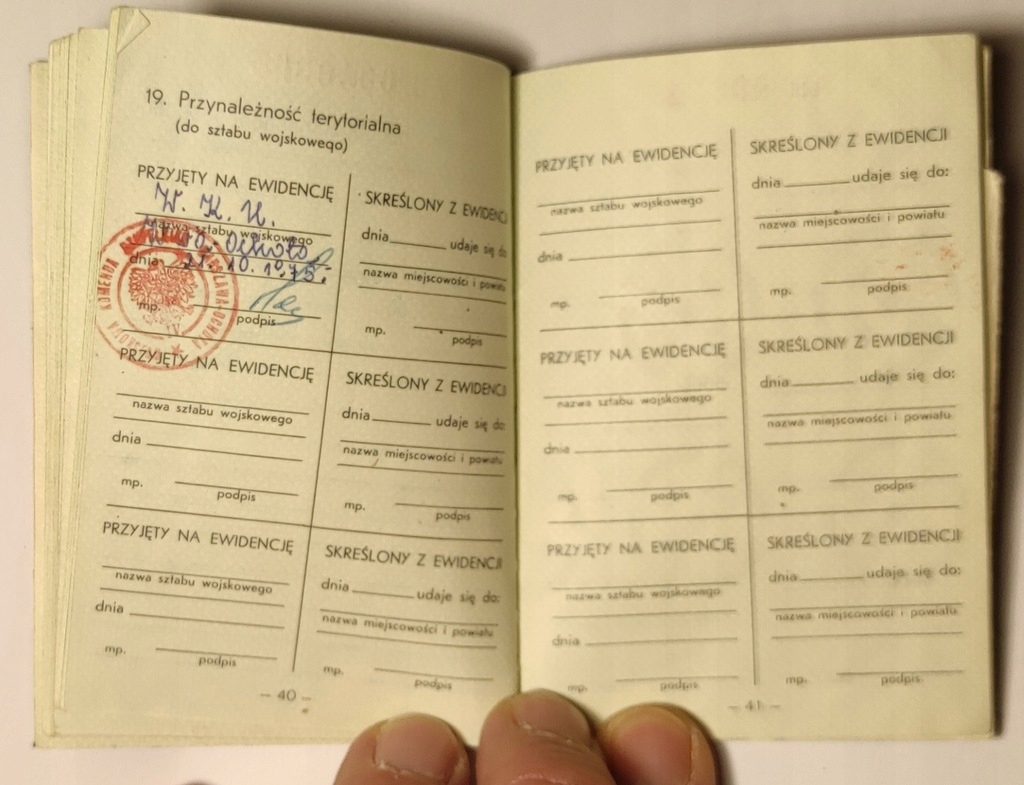 19. Przynależność terytorialna
(do sztabu wojskowego)
PRZYJĘTY NA EWIDENCJĘ
W. K. U.
nazwa sztabu wojskowego
dnia 21. 10. 1975.
mp.
podpis
KOMENDA
OCHOTA
SKREŚLONY Z EWIDENCJI
dnia udaje się do
nazwa miejscowości i powiatu
mp.
podpis
PRZYJĘTY NA EWIDENCJĘ
nazwa sztabu wojskowego
dnia
mp.
podpis
SKREŚLONY Z EWIDENCJI
dnia udaje się do:
nazwa miejscowości i powiatu
mp.
podpis
PRZYJĘTY NA EWIDENCJĘ
nazwa sztabu wojskowego
dnia
mp.
podpis
SKREŚLONY Z EWIDENCJI
dnia udaje się do:
nazwa miejscowości i powiatu
mp.
podpis
– 40 –
PRZYJĘTY NA EWIDENCJĘ
nazwa sztabu wojskowego
dnia
mp.
podpis
SKREŚLONY Z EWIDENCJI
dnia udaje się do:
nazwa miejscowości i powiatu
mp.
podpis
PRZYJĘTY NA EWIDENCJĘ
nazwa sztabu wojskowego
dnia
mp.
podpis
SKREŚLONY Z EWIDENCJI
dnia udaje się do:
nazwa miejscowości i powiatu
mp.
podpis
PRZYJĘTY NA EWIDENCJĘ
nazwa sztabu wojskowego
dnia
mp.
podpis
SKREŚLONY Z EWIDENCJI
dnia udaje się do:
nazwa miejscowości i powiatu
mp.
podpis
– 41 –